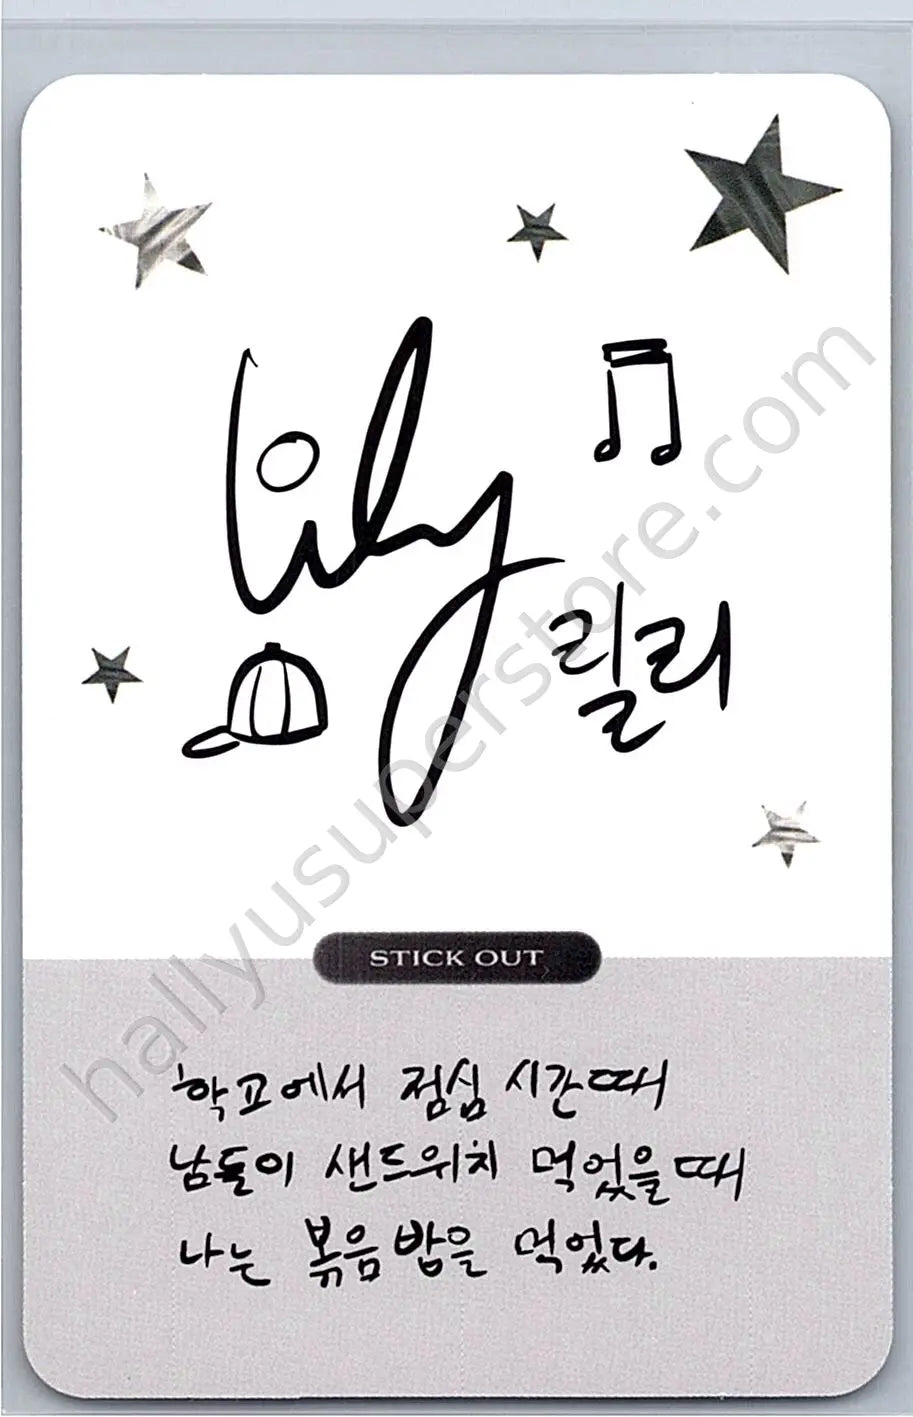 lily
릴리
STICK OUT
학교에서 점심 시간때
남들이 샌드위치 먹었을때
나는 볶음밥을 먹었다.
hallyusuperstore.com